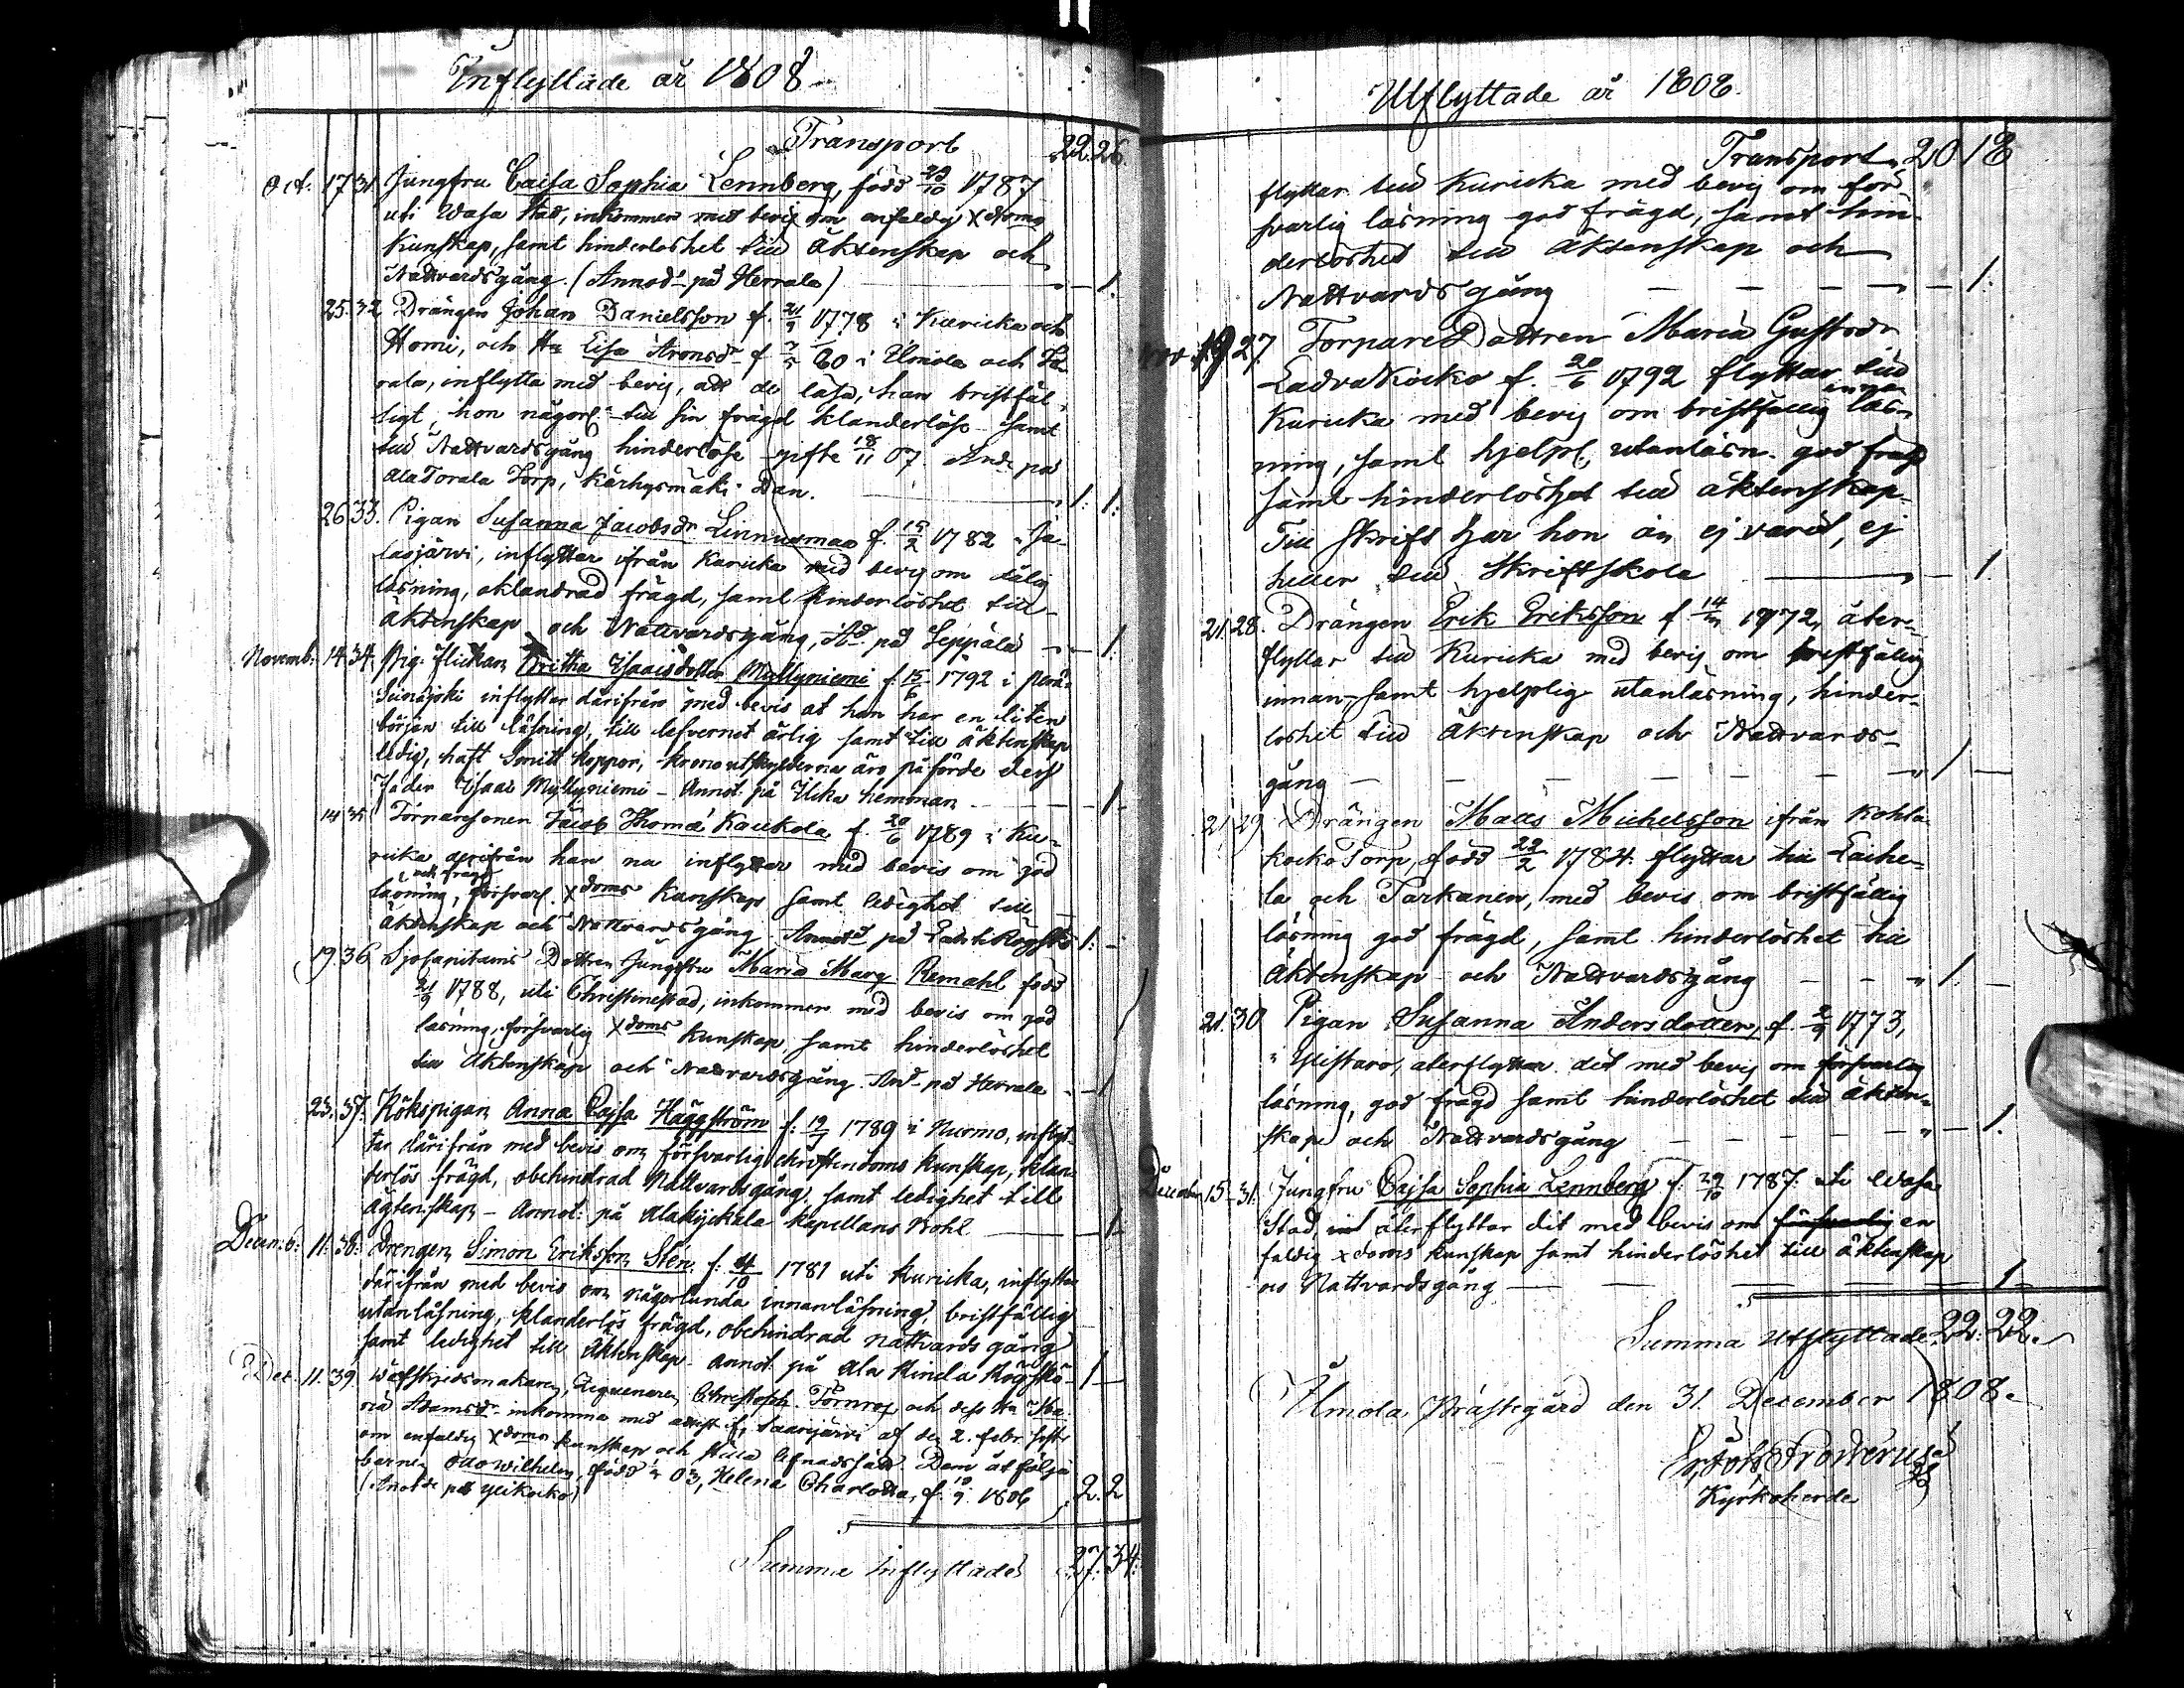 Inflyttade år 1808
Transport 22. 26.
Oct. 17 31. Jungfru Caisa Sophia Lennberg, född 29/10 1787
uti Wasa Stad, inkommer med bevis om enfaldig Xdoms
Kunskap, samt hinderlöshet till Äktenskap och
Nattvardsgång. (Annod på Herrala) — 1.
25. 32 Drängen Johan Danielsson f. 21/9 1778 i Kuricka och
och Hu Lisa Aronsdr f. 60 i Ilmola och
rala, inflytta med bevis, att de läsa, han bristfäl-
ligt, hon någorl. till sin frägd klanderlöse samt
till Nattvardsgång hinderlöse gifte 18/11 07. And. på
Torp, Dan. 1. 1.
26 33. Pigan Susanna Jacobsdr f. 15/2 1782 i Ja-
lasjärvi, inflyttar ifrån Kuricka med bevis om
läsning, oklandrad frägd, samt hinderlöshet till
äktenskap och Nattvardsgång, Ad på Seppälä — 1.
Novemb. 14. 34. Pig. flickan Britha Isaacsdotter Myllyniemi f. 15/6 1792 i Perä-
Seinäjoki inflyttar därifrån med bevis at hon har en liten
början till läsning, till lefvernet ärlig samt till äktenskap
ledig, haft Smitt koppor, Krono utskylderna äro påförde dess
Fader Isaac Myllyniemi - Annot. på Ilkka hemman — 1
14 35 Torparesonen Jacob Thomæ Kaukola f. 20/6 1789 i Ku-
ricka derifrån han nu inflyttar med bevis om god
och frägd
läsning, försvarl. Xdoms Kunskap samt ledighet till
äktenskap och Nattvardsgång Annotd på 1. —
19. 36 Sjöcapitains Dottren Jungfru Maria Marg. Remahl född
21/9 1788, uti Christinestad, inkommer med bevis om god
läsning, försvarlig Xdoms kunskap, samt hinderlöshet
till Äktenskap och Nattvardsgång. And på Herrala — 1
23. 37. Kökspigan Anna Cajsa Häggström f. 19/7 1789 i Nurmo, inflyt-
tar därifrån med bevis om försvarlig christendoms kunskap, klan-
derlös frägd, obehindrad Nattvardsgång, samt ledighet till
Ägtenskap - Annot: på Alakyckala kapellans Bohl — 1.
Decemb: 11. 38: Drengen Simon Eriksson Sten f: 4/10 1781 uti Kuricka, inflyttar
därifrån med bevis om någorlunda innanläsning, bristfällig
utanläsning, klanderlös frägd, obehindrad nattvards gång
samt ledighet till Äktenskap. Annot på Ala Hinda 1 —
Dec. 11. 39. Christoph Törnros och dess Hu Ma-
ria Adamsdr inkomma med attest if. Saarijärvi af de 2. febr.
om enfaldig Xdoms kunskap och stilla lefnadssätt. Dem åtfölja
barnen Otto Wilhelm, född 03, Helena Charlotta, f. 10/9 1806 2. 2
(Anotde på Ylikocko)
Summa inflyttade 27. 34.
Utflyttade år 1808.
Transport 20 18
flyttar till Kuricka med bevis om för-
svarlig läsning god frägd, samt hin-
derlöshet till Äktenskap och
Nattvardsgång — 1.
Nov. 19 27. Torpare Dottren Maria Gustafsdr
Ladvakocko f. 20/6 1792 flyttar till
innan
Kuricka med bevis om bristfällig läs-
ning, samt hjelpl. utanläsn. god frägd
samt hinderlöshet till äktenskap.
Till skrift har hon än ej varit, ej
heller till Skriftskola — 1
21. 28. Drängen Erik Eriksson f. 1772, åter-
flyttar till Kuricka med bevis om bristfällig
innan- samt hjelplig utanläsning, hinder-
löshet till äktenskap och Nattvards-
gång — 1 —
21. 29 Drängen Matts Michelsson ifrån
kocko Torp, född 22/2 1784. flyttar till
la och Parkanen, med bevis om bristfällig
läsning god frägd, samt hinderlöshet till
Äktenskap och Nattvardsgång — 1. —
21. 30 Pigan Susanna Andersdotter, f. 2/9 1773,
i Ylistaro, återflyttar dit med bevis om försvarlig
läsning, god frägd samt hinderlöshet till äkten-
skap och Nattvardsgång — 1.
December 15. 31. Jungfru Cajsa Sophia Lennberg f. 29/10 1787. uti Wasa
Stad, återflyttar dit med bevis om försvarlig en
faldig xdoms kunskap samt hinderlöshet till äktenskap
och Nattvardsgång — 1
Summa Utflyttade 22. 22.
Ilmola Prästegård den 31. December 1808.
Kyrkoherde